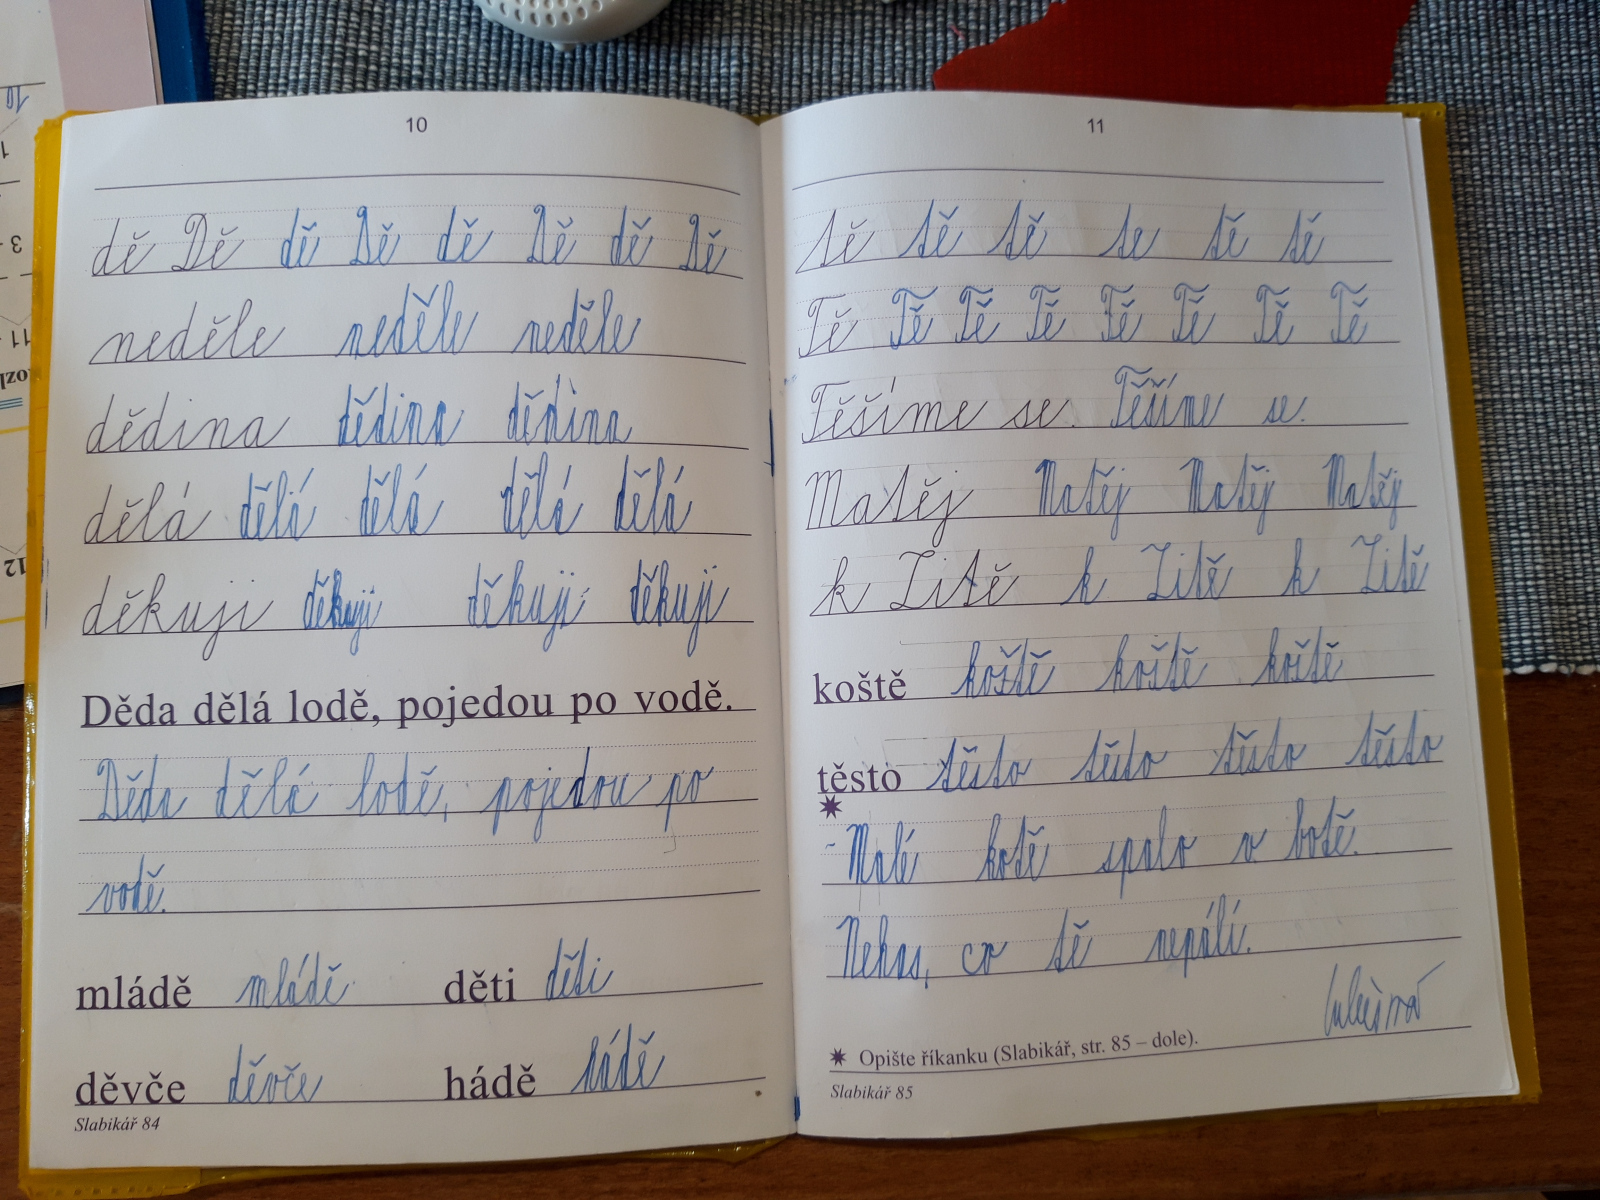 10
dě Dě dě Dě dě Dě dě Dě
neděle neděle neděle
dědina dědina dědina
dělá dělá dělá dělá dělá
děkuji děkuji děkuji děkuji
Děda dělá lodě, pojedou po vodě.
Děda dělá lodě, pojedou po
vodě.
mládě mládě děti děti
děvče děvče hádě hádě
Slabikář 84
11
tě tě tě te tě tě
Tě Tě Tě Tě Tě Tě Tě Tě
Těšíme se. Těšíme se.
Matěj Matěj Matěj Matěj
k Zitě k Zitě k Zitě
koště koště koště koště
těsto těsto těsto těsto těsto
Malé kotě spalo v botě.
Nehas, co tě nepálí.
Opište říkanku (Slabikář, str. 85 – dole).
Slabikář 85
10
1
3
11
12